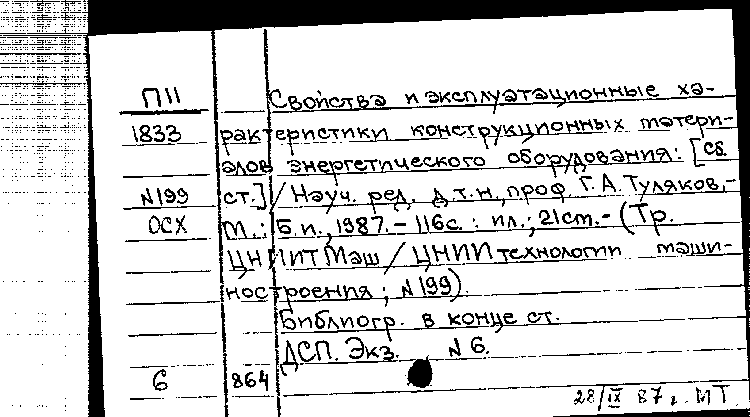 П11 Свойства и эксплуатационные ха-
1833 рактеристики конструкционных матери-
алов энергетического оборудования: [Сб.
N199 ст.] / Науч. ред. д.т.н., проф. Г.А. Туляков,-
ОСХ М.: Б.и., 1987.- 116с.: ил.; 21см.- (Тр.
ЦНИИТМаш / ЦНИИ технологии маши-
ностроения; N199).
Библиогр. в конце ст.
ДСП. Экз. N 6.
6 864
28/IX 87г. МТ